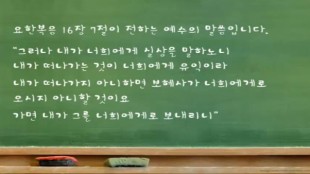 요한복음 16장 7절이 전하는 예수의 말씀입니다.
"그러나 내가 너희에게 실상을 말하노니
내가 떠나가는 것이 너희에게 유익이라
내가 떠나가지 아니하면 보혜사가 너희에게로
오시지 아니할 것이요
가면 내가 그를 너희에게로 보내리니"